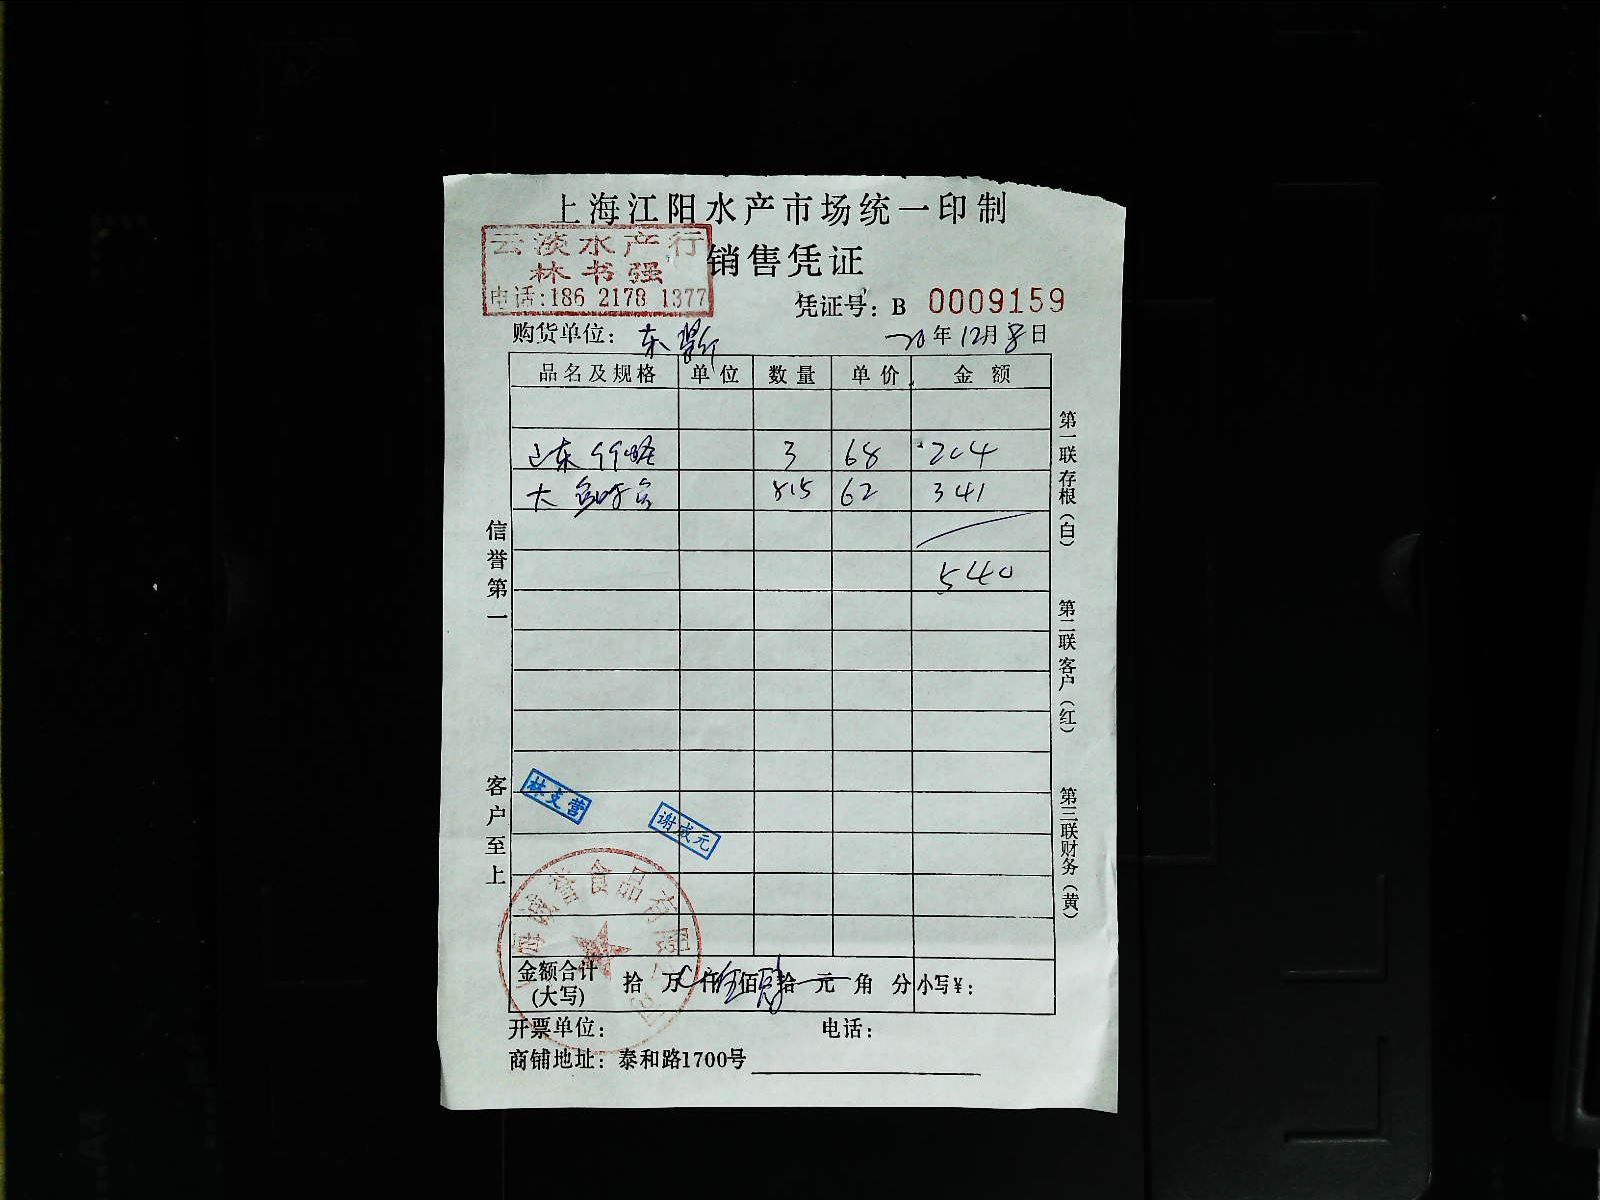 上海江阳水产市场统一印制
云淡水产行
林书强
电话:186 2178 1377
销售凭证
凭证号: B 0009159
购货单位: 东
20年12月8日
品名及规格 单位 数量 单价 金额
3 68 204
大 62 341
540
信誉第一
客户至上
第一联存根(白)
第二联客户(红)
第三联财务(黄)
林支营
谢成元
诚誉食品有限公司
金额合计(大写) 拾 万 仟伍佰肆拾 元 角 分 小写¥:
开票单位: 电话:
商铺地址: 泰和路1700号